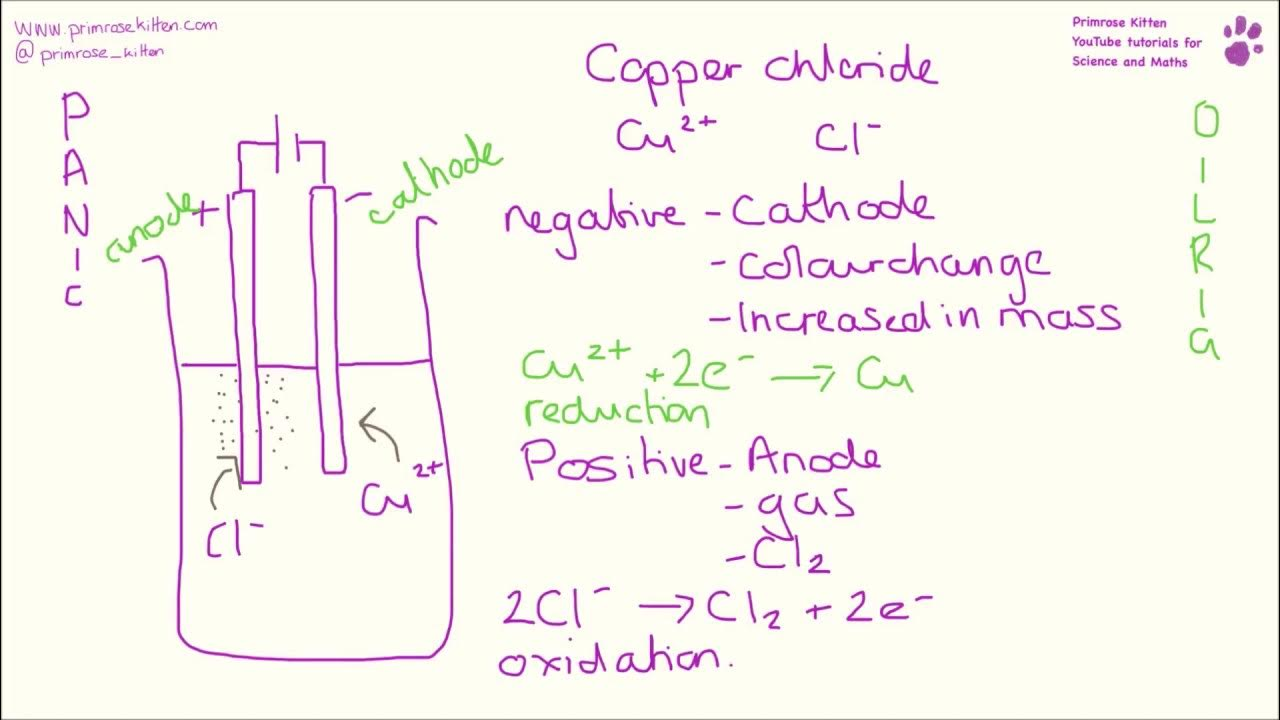 www.primrosekitten.com
@primrose_kitten
Primrose Kitten
YouTube tutorials for
Science and Maths
PANIC
OILRIG
Copper chloride
Cu²⁺ Cl⁻
anode + - cathode
negative - Cathode
- colourchange
- Increased in mass
Cu²⁺ + 2e⁻ → Cu
reduction
Positive - Anode
- gas
- Cl₂
2Cl⁻ → Cl₂ + 2e⁻
oxidation.
Cl⁻
Cu²⁺